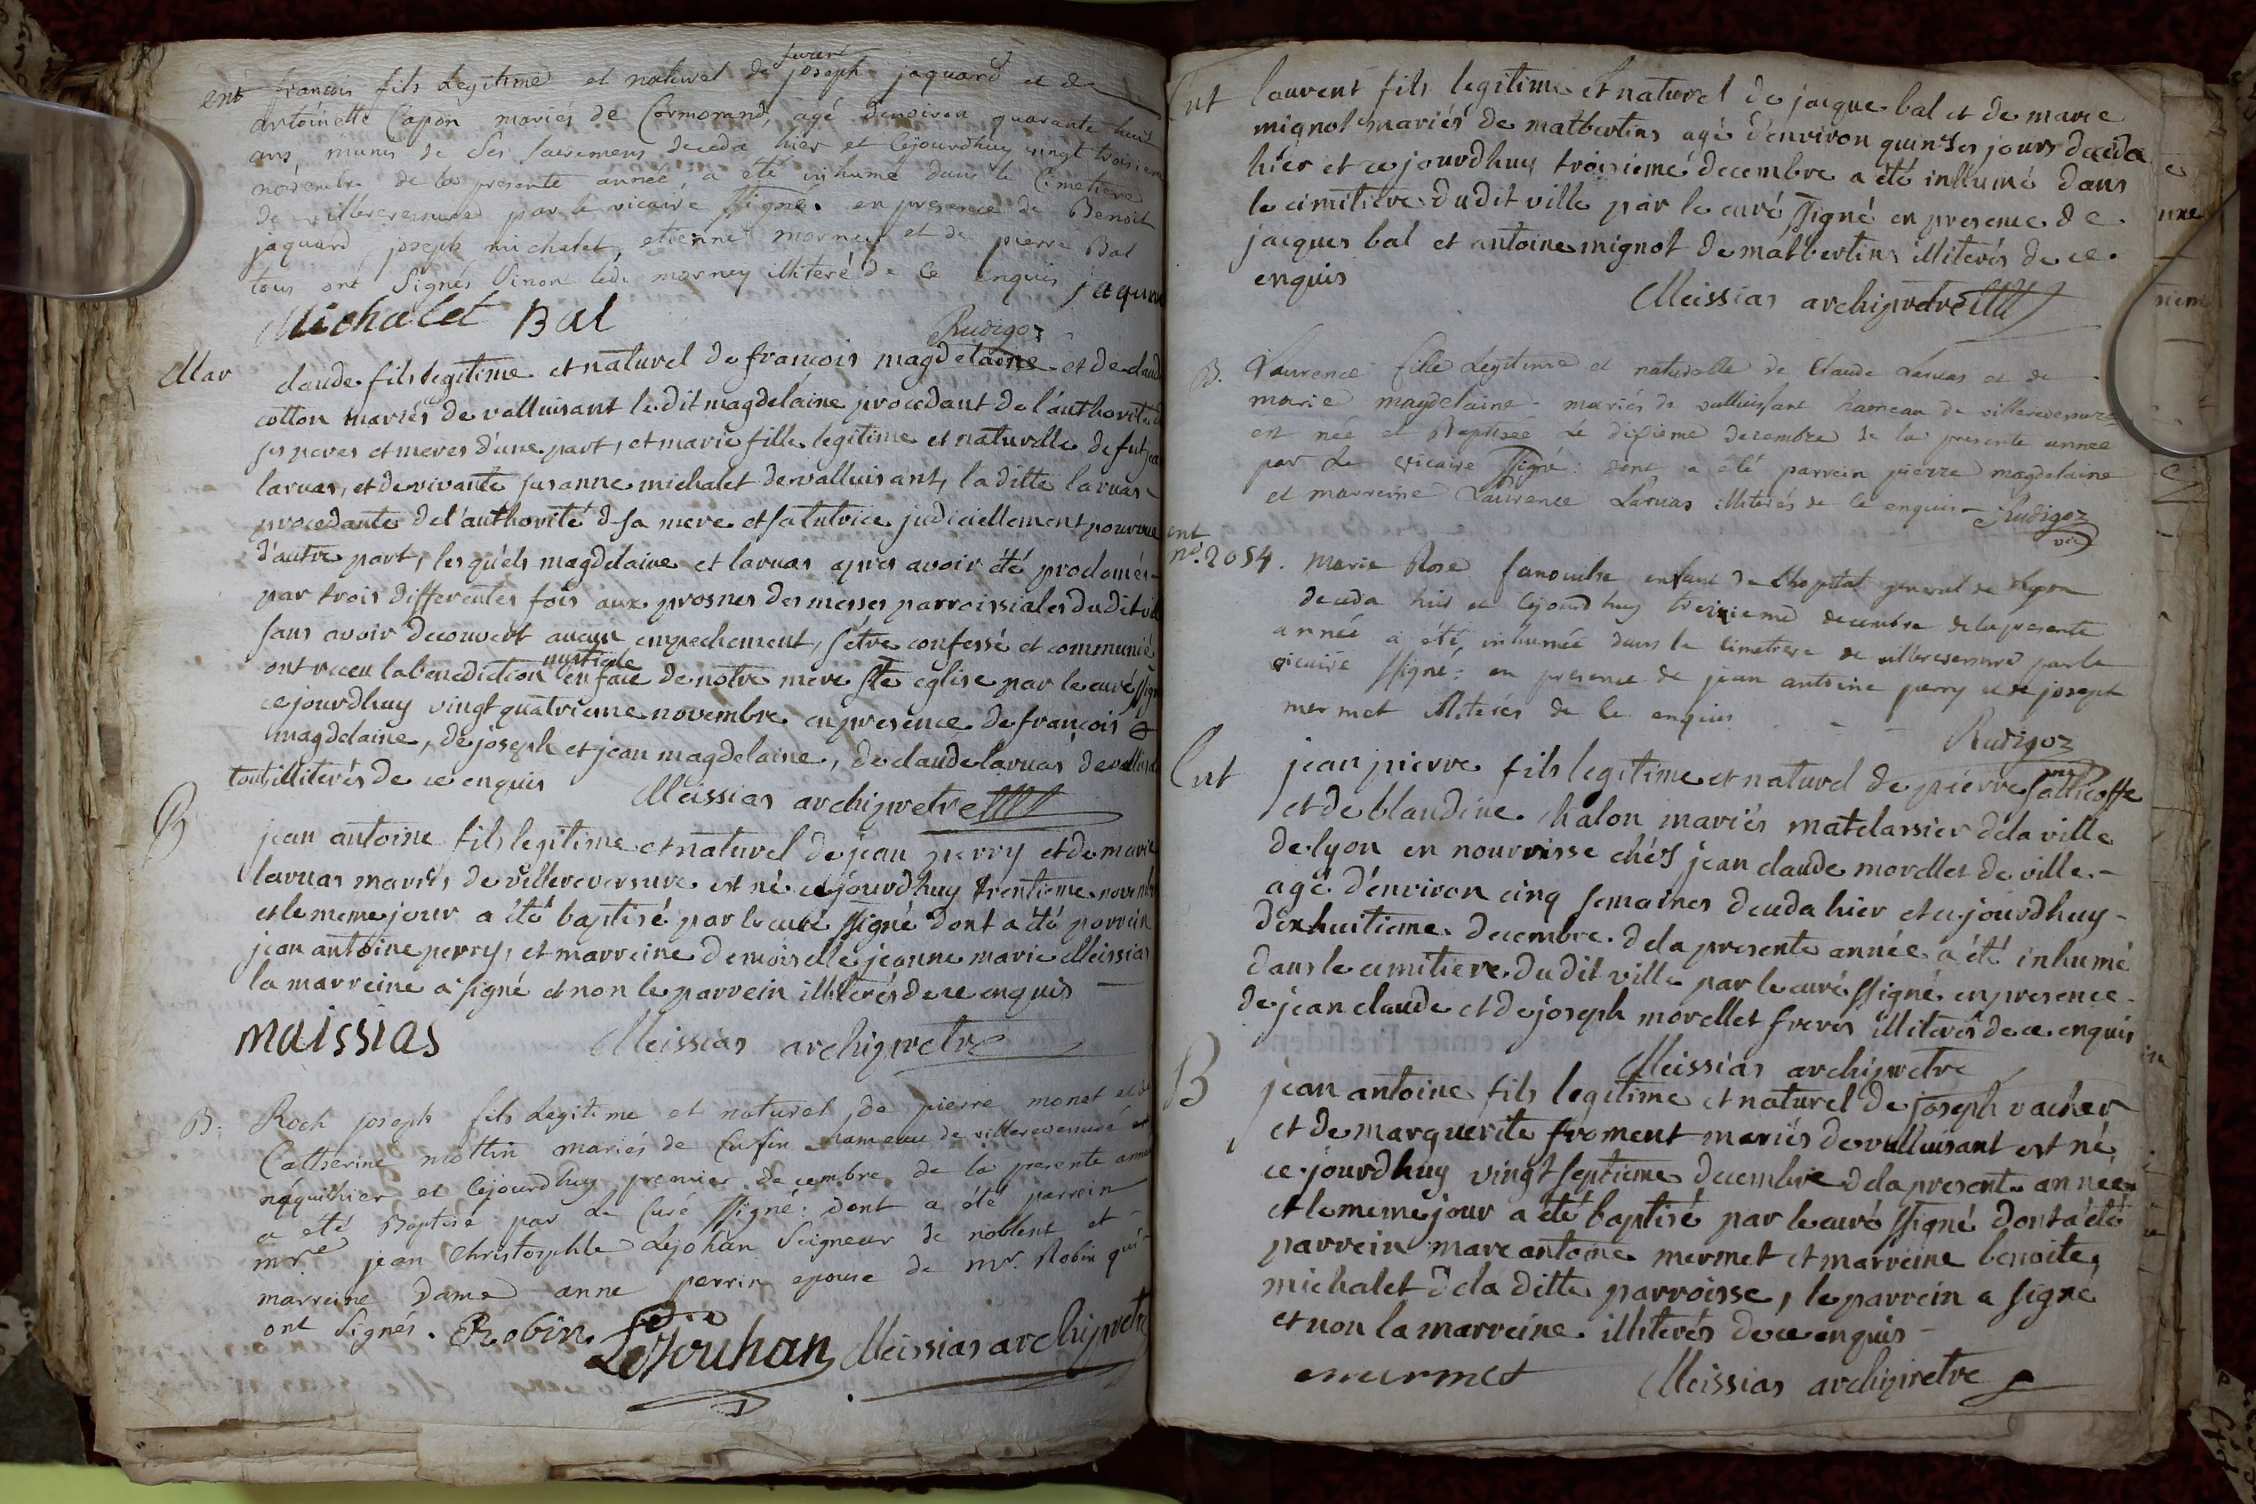 ent françois fils Legitime et naturel de feu joseph jaquard et de
antoinette Capon mariés de Cormorand, agé denviron quarante huit
ans, munis de Ses Sacremens deceda hier et Cejourdhuy vingt troisieme
novembre de la presente année a été inhumé dans le Cimetiere
de villereversure par le vicaire ssigné. en presence de Benoit
jaquard joseph michalet, etienne mornay et de pierre Bal
tous ont Signés Sinon ledi mornay illiteré de Ce enquis jaquard
Michalet Bal
Rudigoz
Mar claude fils legitime et naturel de françois magdelaine et de claud
cotton mariés de valluisant le dit magdelaine procedant de l'authorité d
ses peres et meres d'une part, et marie fille legitime et naturelle de fut jea
laruas, et de vivante susanne michalet de valluisant, la ditte laruas
procedante de l'authorité d sa mere et sa tutrice judiciellement pourvue
d'autre part, les quels magdelaine et laruas apres avoir été proclamés
par trois differentes fois aux prosnes des messes parroissiales dudit vil
sans avoir decouvert aucun empechement, s'etre confessé et communié
ont receu la benediction nuptiale en face de notre mere ste eglise par le curé ssign
cejourdhuy vingt quatrieme novembre en presence de françois
magdelaine, de joseph et jean magdelaine, de claude laruas de valluisa
tout illiterés de ce enquis Meissias archipretre
B jean antoine fils legitime et naturel de jean perry et de marie
laruas mariés de villereversure est né cejourdhuy trentieme novemb
et le meme jour a été baptisé par le curé ssigné dont a été parrein
jean antoine perry, et marreine demoiselle jeanne marie Meissias
la marreine a signé et non le parrein illiterés de ce enquis
maissias Meissias archipretre
B. Roch joseph fils Legitime et naturel de pierre monet et d
Catherine mottin mariés de Cursin hameau de villereversure est
né hier et Cejourdhuy premier decembre de la presente anné
a été Baptisé par Le Curé ssigné: dont a été parrein
mre. jean Christosphle Lejohan Seigneur de noblent et
marreine Dame anne perrin epouse de mr. Robin qui
ont Signés. Robin LeJouhan Meissias archipretre
Ent laurent fils legitime et naturel de jacque bal et de marie
mignot mariés de matbertins agé d'environ quinses jours deceda
hier et ce jourdhuy troisieme decembre a été inhumé dans
le cimitiere dudit ville par le curé ssigné en presence de
jacques bal et antoine mignot de matbertins illiterés de ce
enquis
Meissias archipretre
B. Laurence fille Legitime et naturelle de Claude Laruas et de
marie magdelaine mariés de valluissant hameau de villereversure
est née et Baptisée Le dixieme decembre de la presente année
par Le vicaire ssigné: dont a été parrein pierre magdelaine
et marreine Laurence Laruas illiterés de Ce enquis Rudigoz
vic
ent
no. 2054. Marie Rose enfant de l'hopital general de Lyon
deceda hier et Cejourdhuy treizieme decembre de la presente
année a été inhumée dans le Cimetiere de villereversure par le
vicaire ssigné: en presence de jean antoine perry et de joseph
mermet illiterés de Ce enquis
Rudigoz
vic
Ent jean pierre fils legitime et naturel de pierre
et de blandine halon mariés matelassier dela ville
de lyon en nourrisse chés jean claude morellet de ville
agé d'environ cinq semaines deceda hier et cejourdhuy
dixhuitieme decembre dela presente année a été inhumé
dans le cimitiere dudit ville par le curé ssigné en presence
de jean claude et de joseph morellet freres illiterés de ce enquis
Meissias archipretre
B jean antoine fils legitime et naturel de joseph vacher
et de marguerite froment mariés de valluisant est né
ce jourdhuy vingt septieme decembre dela presente année
et le meme jour a été baptisé par le curé ssigné dont a été
parrein marc antoine mermet et marreine benoite
michalet dela ditte parroisse, le parrein a signé
et non la marreine illiterés de ce enquis
mermet Meissias archipretre